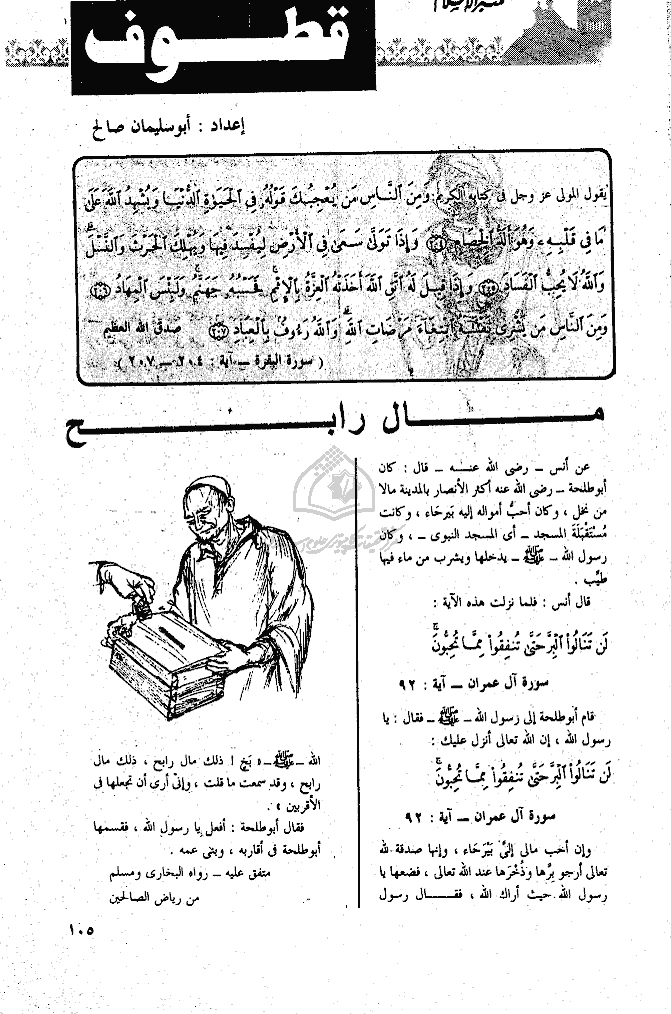 منبر الإسلام
قطوف
إعداد : أبو سليمان صالح
يقول المولى عز وجل فى كتابه الكريم وَمِنَ النَّاسِ مَن يُعْجِبُكَ قَوْلُهُ فِى الْحَيَوٰةِ الدُّنْيَا وَيُشْهِدُ اللَّهَ عَلَىٰ
مَا فِى قَلْبِهِ وَهُوَ أَلَدُّ الْخِصَامِ ﴿٢٠٤﴾ وَإِذَا تَوَلَّىٰ سَعَىٰ فِى الْأَرْضِ لِيُفْسِدَ فِيهَا وَيُهْلِكَ الْحَرْثَ وَالنَّسْلَ
وَاللَّهُ لَا يُحِبُّ الْفَسَادَ ﴿٢٠٥﴾ وَإِذَا قِيلَ لَهُ اتَّقِ اللَّهَ أَخَذَتْهُ الْعِزَّةُ بِالْإِثْمِ فَحَسْبُهُ جَهَنَّمُ وَلَبِئْسَ الْمِهَادُ ﴿٢٠٦﴾
وَمِنَ النَّاسِ مَن يَشْرِى نَفْسَهُ ابْتِغَاءَ مَرْضَاتِ اللَّهِ وَاللَّهُ رَءُوفٌ بِالْعِبَادِ ﴿٢٠٧﴾ صدق الله العظيم
( سورة البقرة ــ آية : ٢٠٤ ــ ٢٠٧ ) .
مـال رابـح
عن أنس ــ رضى الله عنـه ــ قال : كان
أبو طلحة ــ رضى الله عنه أكثر الأنصار بالمدينة مالا
من نخل ، وكان أحبُّ أمواله إليه بَيرحَاء ، وكانت
مُسْتَقْبِلَةَ المسجد ــ أى المسجد النبوى ــ ، وكان
رسول الله ــ ﷺ ــ يدخلها ويشرب من ماء فيها
طيِّب .
قال أنس : فلما نزلت هذه الآية :
لَن تَنَالُوا۟ الْبِرَّ حَتَّىٰ تُنفِقُوا۟ مِمَّا تُحِبُّونَ
سورة آل عمران ــ آية : ٩٢
قام أبو طلحة إلى رسول الله ــ ﷺ ــ فقال : يا
رسول الله ، إن الله تعالى أنزل عليك :
لَن تَنَالُوا۟ الْبِرَّ حَتَّىٰ تُنفِقُوا۟ مِمَّا تُحِبُّونَ
سورة آل عمران ــ آية : ٩٢
وإن أحب مالى إلىَّ بَيْرَحَاء ، وإنها صدقة لله
تعالى أرجو بِرَّها وذُخْرَها عند الله تعالى ، فضعها يا
رسول الله حيث أراك الله ، فقـال رسول
الله ــ ﷺ ــ « بَخٍ ! ذلك مال رابح ، ذلك مال
رابح ، وقد سمعت ما قلت ، وإنّى أرى أن تجعلها فى
الأقربين » .
فقال أبو طلحة : أفعل يا رسول الله ، فقسمها
أبو طلحة فى أقاربه ، وبنى عمه .
متفق عليه ــ رواه البخارى ومسلم
من رياض الصالحين
١٠٥